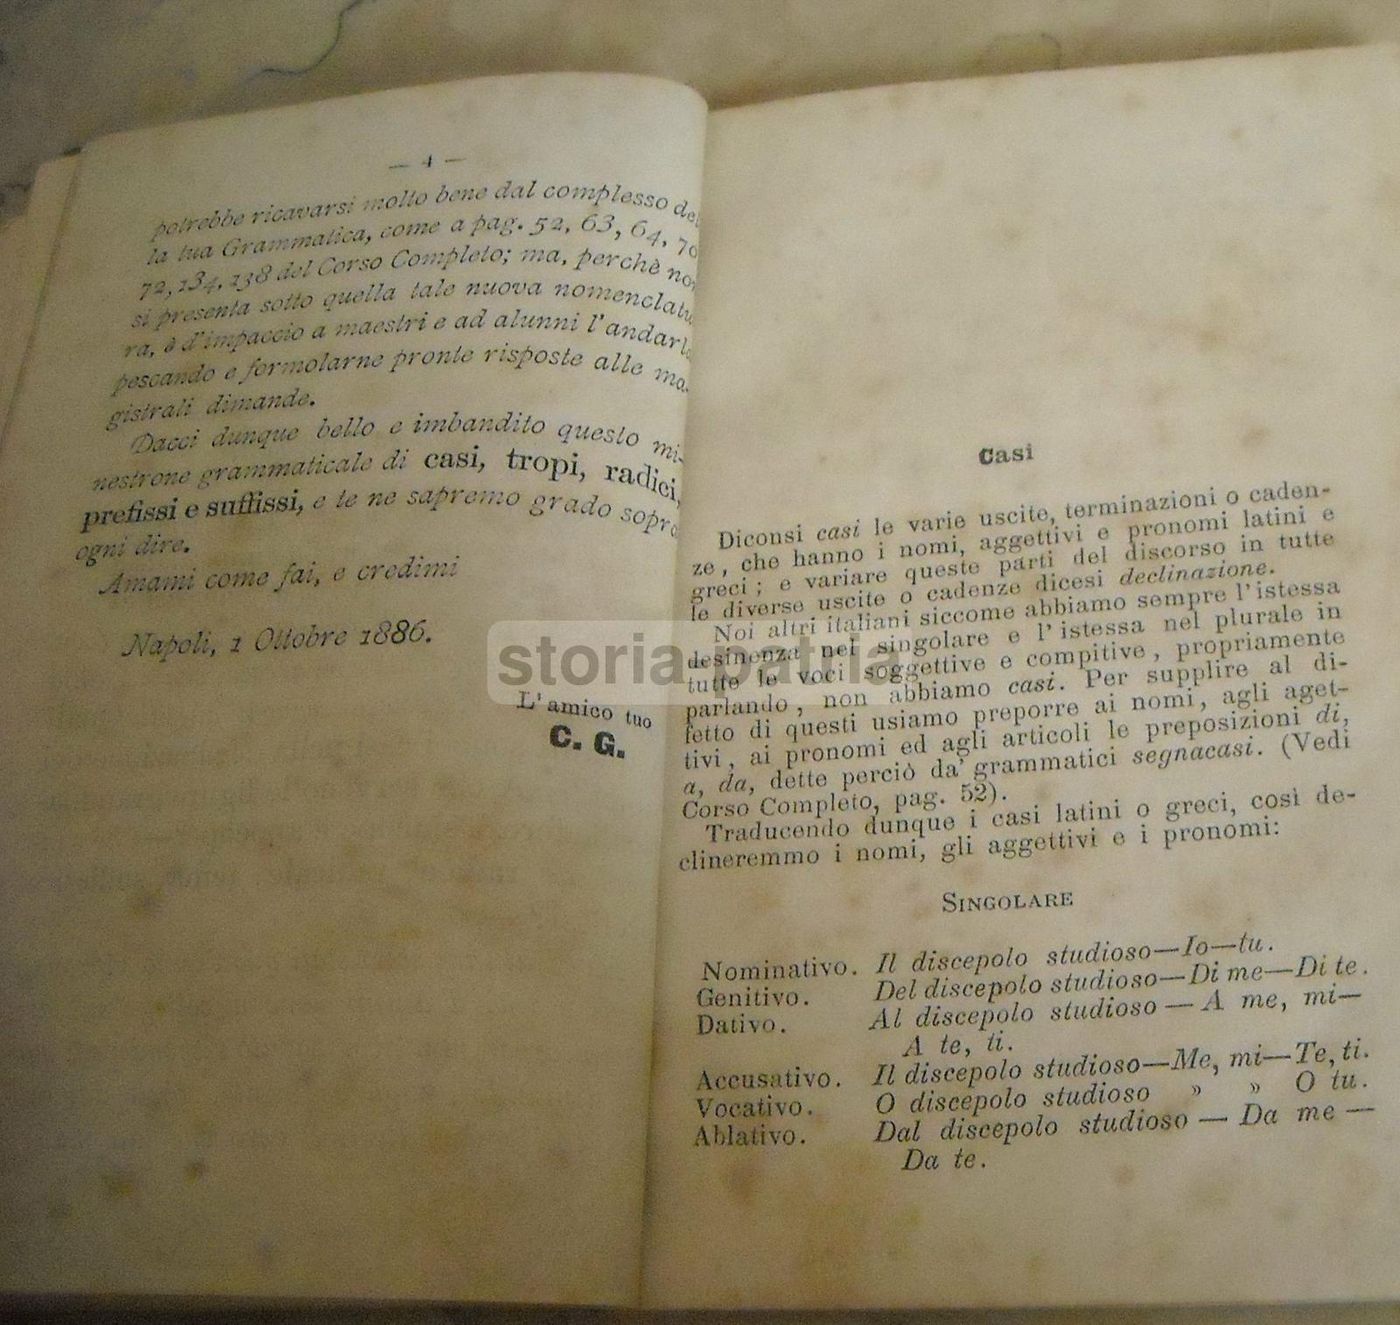 — 4 —
potrebbe ricavarsi molto bene dal complesso del
la tua Grammatica, come a pag. 52, 63, 64, 70
72, 134, 138 del Corso Completo; ma, perchè non
si presenta sotto quella tale nuova nomenclatu
ra, è d'impaccio a maestri e ad alunni l'andarla
pescando e formolarne pronte risposte alle ma-
gistrali dimande.
Dacci dunque bello e imbandito questo mi-
nestrone grammaticale di casi, tropi, radici,
prefissi e suffissi, e te ne sapremo grado sopra
ogni dire.
Amami come fai, e credimi
Napoli, 1 Ottobre 1886.
L'amico tuo
C. G.
Casi
Diconsi casi le varie uscite, terminazioni o caden-
ze, che hanno i nomi, aggettivi e pronomi latini e
greci; e variare queste parti del discorso in tutte
le diverse uscite o cadenze dicesi declinazione.
Noi altri italiani siccome abbiamo sempre l'istessa
desinenza nel singolare e l'istessa nel plurale in
tutte le voci soggettive e compitive, propriamente
parlando, non abbiamo casi. Per supplire al di-
fetto di questi usiamo preporre ai nomi, agli aget-
tivi, ai pronomi ed agli articoli le preposizioni di,
a, da, dette perciò da' grammatici segnacasi. (Vedi
Corso Completo, pag. 52).
Traducendo dunque i casi latini o greci, così de-
clineremmo i nomi, gli aggettivi e i pronomi:
SINGOLARE
Nominativo. Il discepolo studioso—Io—tu.
Genitivo. Del discepolo studioso—Di me—Di te.
Dativo. Al discepolo studioso — A me, mi—
A te, ti.
Accusativo. Il discepolo studioso—Me, mi—Te, ti.
Vocativo. O discepolo studioso » » O tu.
Ablativo. Dal discepolo studioso — Da me —
Da te.
storia patria